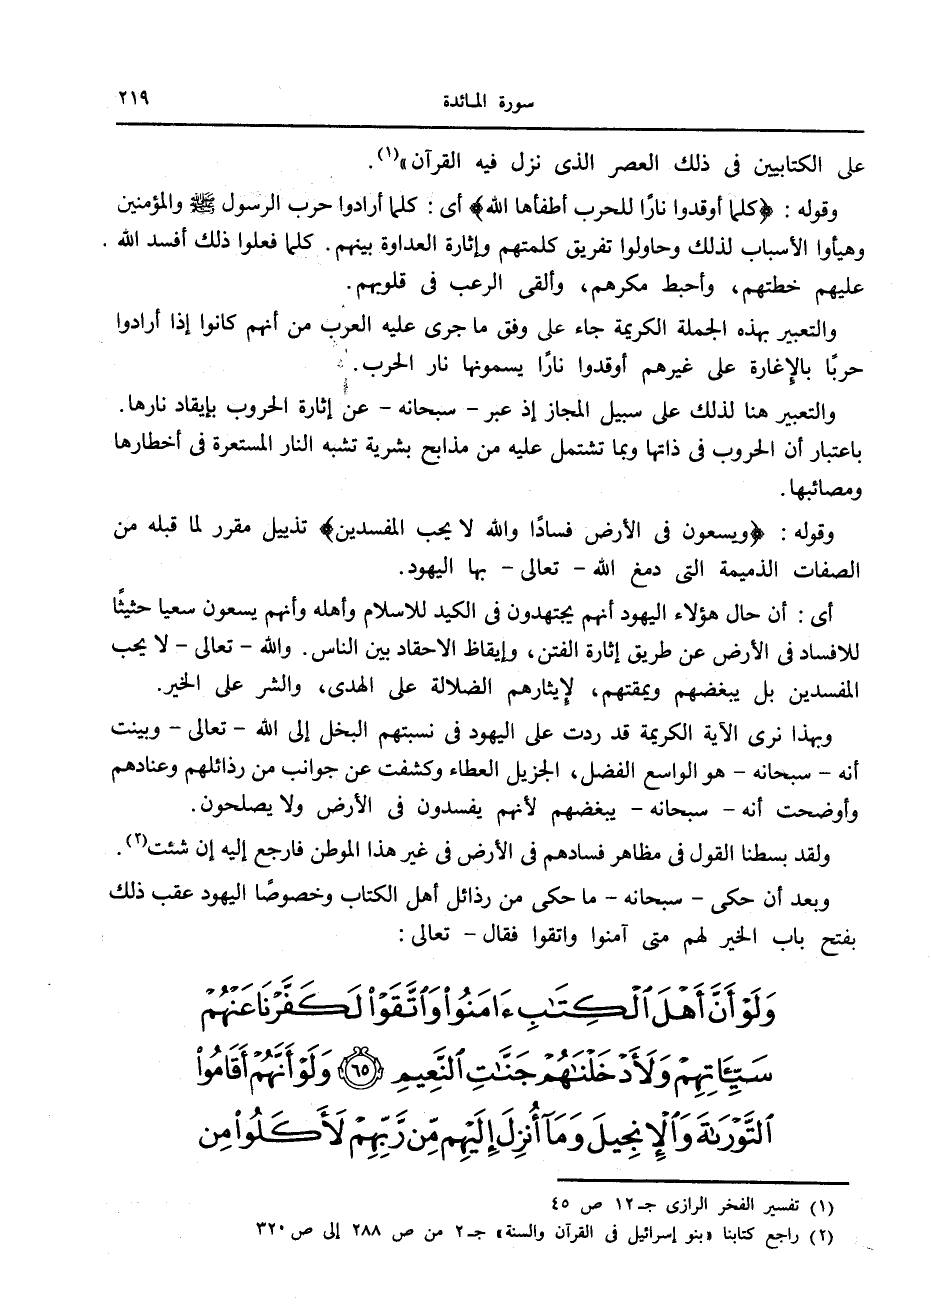 سورة المائدة ٢١٩
على الكتابيين فى ذلك العصر الذى نزل فيه القرآن»(١).
وقوله : ﴿كلما أوقدوا نارًا للحرب أطفأها الله﴾ أى : كلما أرادوا حرب الرسول ﷺ والمؤمنين
وهيأوا الأسباب لذلك وحاولوا تفريق كلمتهم وإثارة العداوة بينهم. كلما فعلوا ذلك أفسد الله
عليهم خطتهم، وأحبط مكرهم، وألقى الرعب فى قلوبهم.
والتعبير بهذه الجملة الكريمة جاء على وفق ما جرى عليه العرب من أنهم كانوا إذا أرادوا
حربًا بالإغارة على غيرهم أوقدوا نارًا يسمونها نار الحرب.
والتعبير هنا لذلك على سبيل المجاز إذ عبر - سبحانه - عن إثارة الحروب بإيقاد نارها.
باعتبار أن الحروب فى ذاتها وبما تشتمل عليه من مذابح بشرية تشبه النار المستعرة فى أخطارها
ومصائبها.
وقوله : ﴿ويسعون فى الأرض فسادًا والله لا يحب المفسدين﴾ تذييل مقرر لما قبله من
الصفات الذميمة التى دمغ الله - تعالى - بها اليهود.
أى : أن حال هؤلاء اليهود أنهم يجتهدون فى الكيد للاسلام وأهله وأنهم يسعون سعيا حثيثًا
للافساد فى الأرض عن طريق إثارة الفتن، وإيقاظ الاحقاد بين الناس. والله - تعالى - لا يحب
المفسدين بل يبغضهم ويمقتهم، لإيثارهم الضلالة على الهدى، والشر على الخير.
وبهذا نرى الآية الكريمة قد ردت على اليهود فى نسبتهم البخل إلى الله - تعالى - وبينت
أنه - سبحانه - هو الواسع الفضل، الجزيل العطاء وكشفت عن جوانب من رذائلهم وعنادهم
وأوضحت أنه - سبحانه - يبغضهم لأنهم يفسدون فى الأرض ولا يصلحون.
ولقد بسطنا القول فى مظاهر فسادهم فى الأرض فى غير هذا الموطن فارجع إليه إن شئت(٢).
وبعد أن حكى - سبحانه - ما حكى من رذائل أهل الكتاب وخصوصًا اليهود عقب ذلك
بفتح باب الخير لهم متى آمنوا واتقوا فقال - تعالى :
وَلَوْ أَنَّ أَهْلَ ٱلْكِتَٰبِ ءَامَنُوا۟ وَٱتَّقَوْا۟ لَكَفَّرْنَا عَنْهُمْ
سَيِّـَٔاتِهِمْ وَلَأَدْخَلْنَٰهُمْ جَنَّٰتِ ٱلنَّعِيمِ ﴿٦٥﴾ وَلَوْ أَنَّهُمْ أَقَامُوا۟
ٱلتَّوْرَىٰةَ وَٱلْإِنجِيلَ وَمَآ أُنزِلَ إِلَيْهِم مِّن رَّبِّهِمْ لَأَكَلُوا۟ مِن
(١) تفسير الفخر الرازى جـ١٢ ص ٤٥
(٢) راجع كتابنا «بنو إسرائيل فى القرآن والسنة» جـ٢ من ص ٢٨٨ إلى ص ٣٢٠